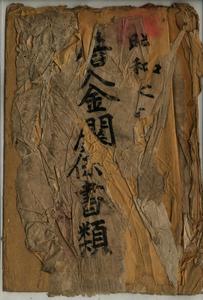 昭和
借入金関係書類